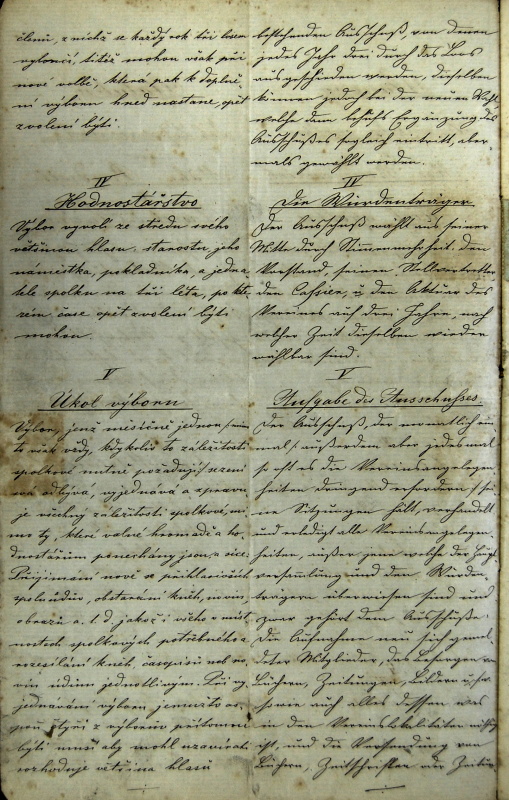 členů, z nichž se každý rok tři losem
vylosují, titéž mohou však při
nové volbě, která pak k doplně-
ní výboru hned nastane, opět
zvoleni býti.
IV
Hodnostářstvo
Výbor vyvolí ze středu svého
většinou hlasů starostu, jeho
náměstka, pokladníka, a jedna-
tele spolku na tři léta, po kte-
rém čase opět zvoleni býti
mohou.
V
Úkol výboru
Výbor, jenž měsíčně jednou, mimo
to však vždy, kdykoliv to záležitosti
spolkové nutně požadují, sezení
svá odbývá, vyjednává a spravu-
je všechny záležitosti spolkové, mi-
mo ty, které valné hromadě a ho-
dnostářům ponechány jsou, a sice:
Přijímání nově se přihlásivších
spoluúdů, obstarání knih, novin,
obrazů a.t.d. jakož i všeho v míst-
nostech spolkových potřebného a
rozesílání knih, časopisů neb no-
vin údům jednotlivým. Při vy-
jednávání výboru jemuž to as-
poň čtyři z výborů přítomni
býti musí aby mohl uzavírati
rozhoduje většina hlasů
bestehenden Ausschuß, von denen
jedes Jahr drei durch das Loos
ausgeschieden werden, dieselben
können jedoch bei der neuen Wahl,
welche dann behufs Ergänzung des
Ausschußes sogleich eintritt, aber-
mals gewählt werden.
IV
Die Würdenträger.
Der Ausschuß wählt aus seiner
Mitte durch Stimmenmehrheit den
Vorstand, seinen Stellvertreter
den Cassier, u den Aktuar des
Vereins auf drei Jahre, nach
welcher Zeit dieselben wieder
wählbar sind.
V
Aufgabe des Ausschusses.
Der Ausschuß, der monatlich ein-
mal, außerdem aber jedesmal
so oft es die Vereinsangelegen-
heiten dringend erfordern sei-
ne Sitzungen hält, verhandelt
und erledigt alle Vereinsangelegen-
heiten, außer jene welche der Haupt-
versammlung und den Würden-
trägern überwiesen sind und
zwar gehört dem Ausschuße:
Die Aufnahme neu sich gemel-
deter Mitglieder, das Besorgen von
Büchern, Zeitungen, Bildern u.s.w.
sowie auch alles dessen was
in den Vereinslokalitäten nöthig
ist, und die Versendung von
Büchern, Zeitschriften oder Zeitun-